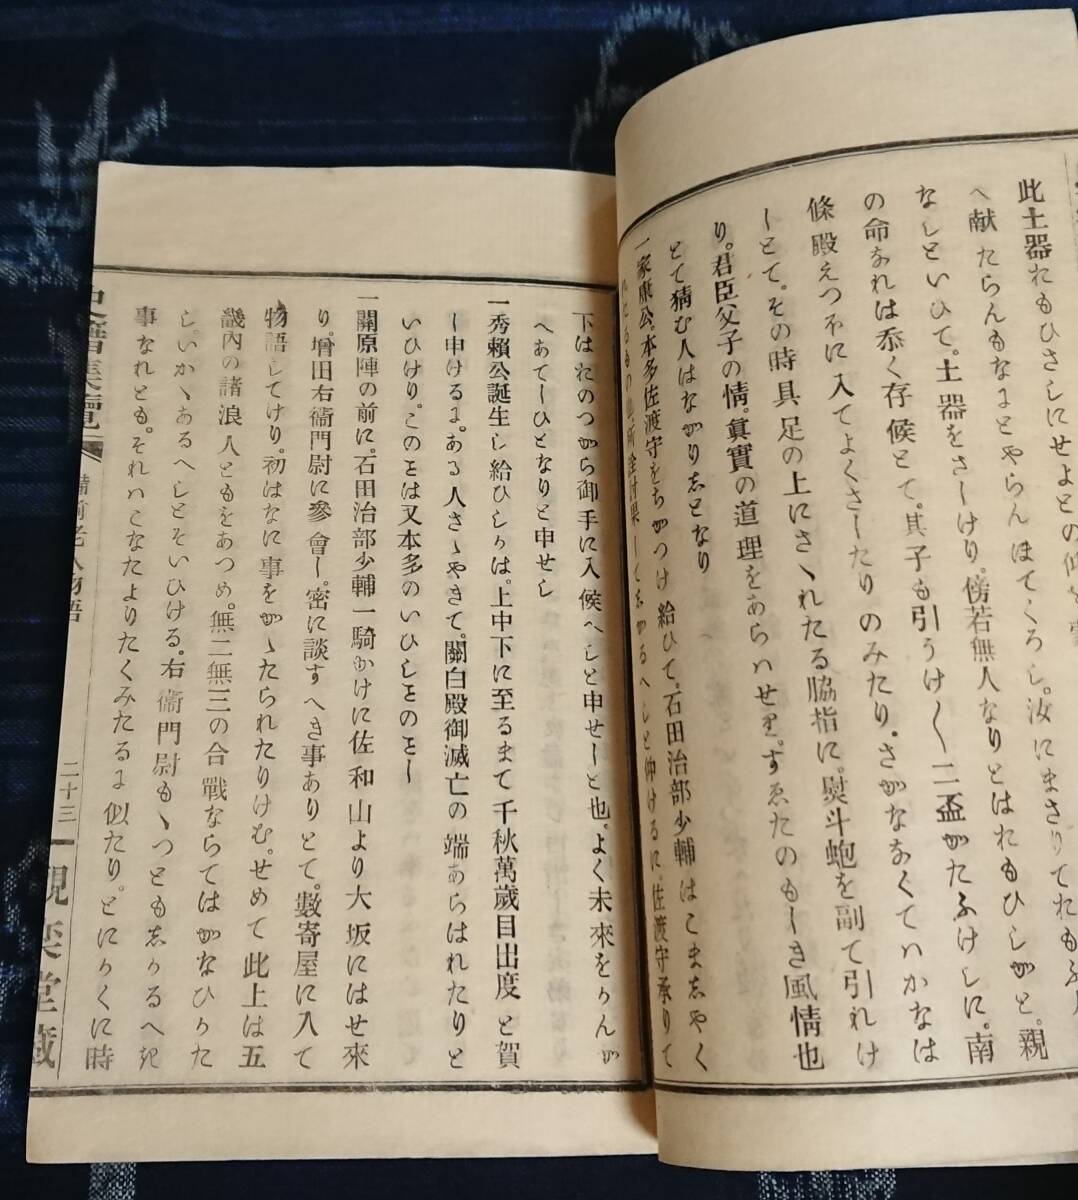 此土器たもひさしにせよとの仰を
へ献たらんもなにとやらんほてくろし。汝にまさりてたもふ
なしといひて。土器をさしけり。傍若無人なりとはたもひしが。と。親
の命なれは忝く存候とて。其子も引うけ〱二盃がたふけしに。南
條殿えつほに入てよくさしたりのみたり。さかななくてハかなは
しとて。その時具足の上にさゝれたる脇指に。熨斗蚫を副て引れけ
り。君臣父子の情。眞實の道理をあらハせり。すゑたのもしき風情也
とて猜む人はながりしとなり
一家康公。本多佐渡守をちかつけ給ひて。石田治部少輔はこましやく
れたるもの也。所詮討果してしかるへしと仰けるに。佐渡守承りて
下はたのつから御手に入候へしと申せしと也。よく未來をりんが
へあてしひとなりと申せし
一秀頼公誕生し給ひしりは。上中下に至るまて千秋萬歲目出度と賀
し申けるに。ある人さゝやきて。關白殿御滅亡の端あらはれたりと
いひけり。このをは又本多のいひしをのをし
一關原陣の前に。石田治部少輔一騎かけに佐和山より大坂にはせ來
り。增田右衞門尉に參會し。密に談すへき事ありとて。數寄屋に入て
物語してけり。初はなに事をがゝたられたりけむ。せめて此上は五
畿內の諸浪人ともをあつめ。無二無三の合戰ならてはがなひりた
し。いかゝあるへしとそいひける。右衞門尉もゝつともしりるへき
事なれとも。それハこなたよりたくみたるに似たり。とにりくに時
史籍集覽 備前老人物語 二十三 觀奕堂藏